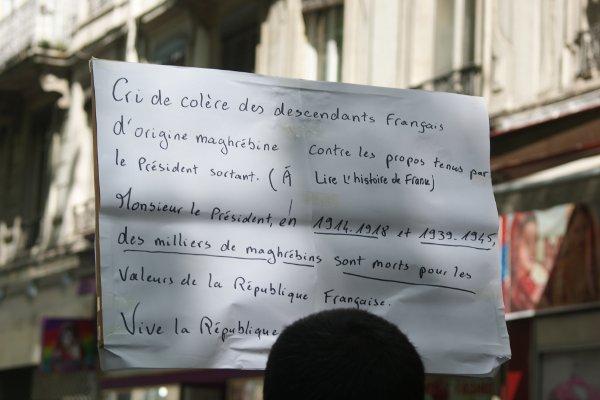 Cri de colère des descendants Français
d'origine maghrébine contre les propos tenus par
le Président sortant. (Á Lire l'histoire de France)
Monsieur le Président, en 1914-1918 et 1939-1945,
des milliers de maghrébins sont morts pour les
valeurs de la République Française.
Vive la République